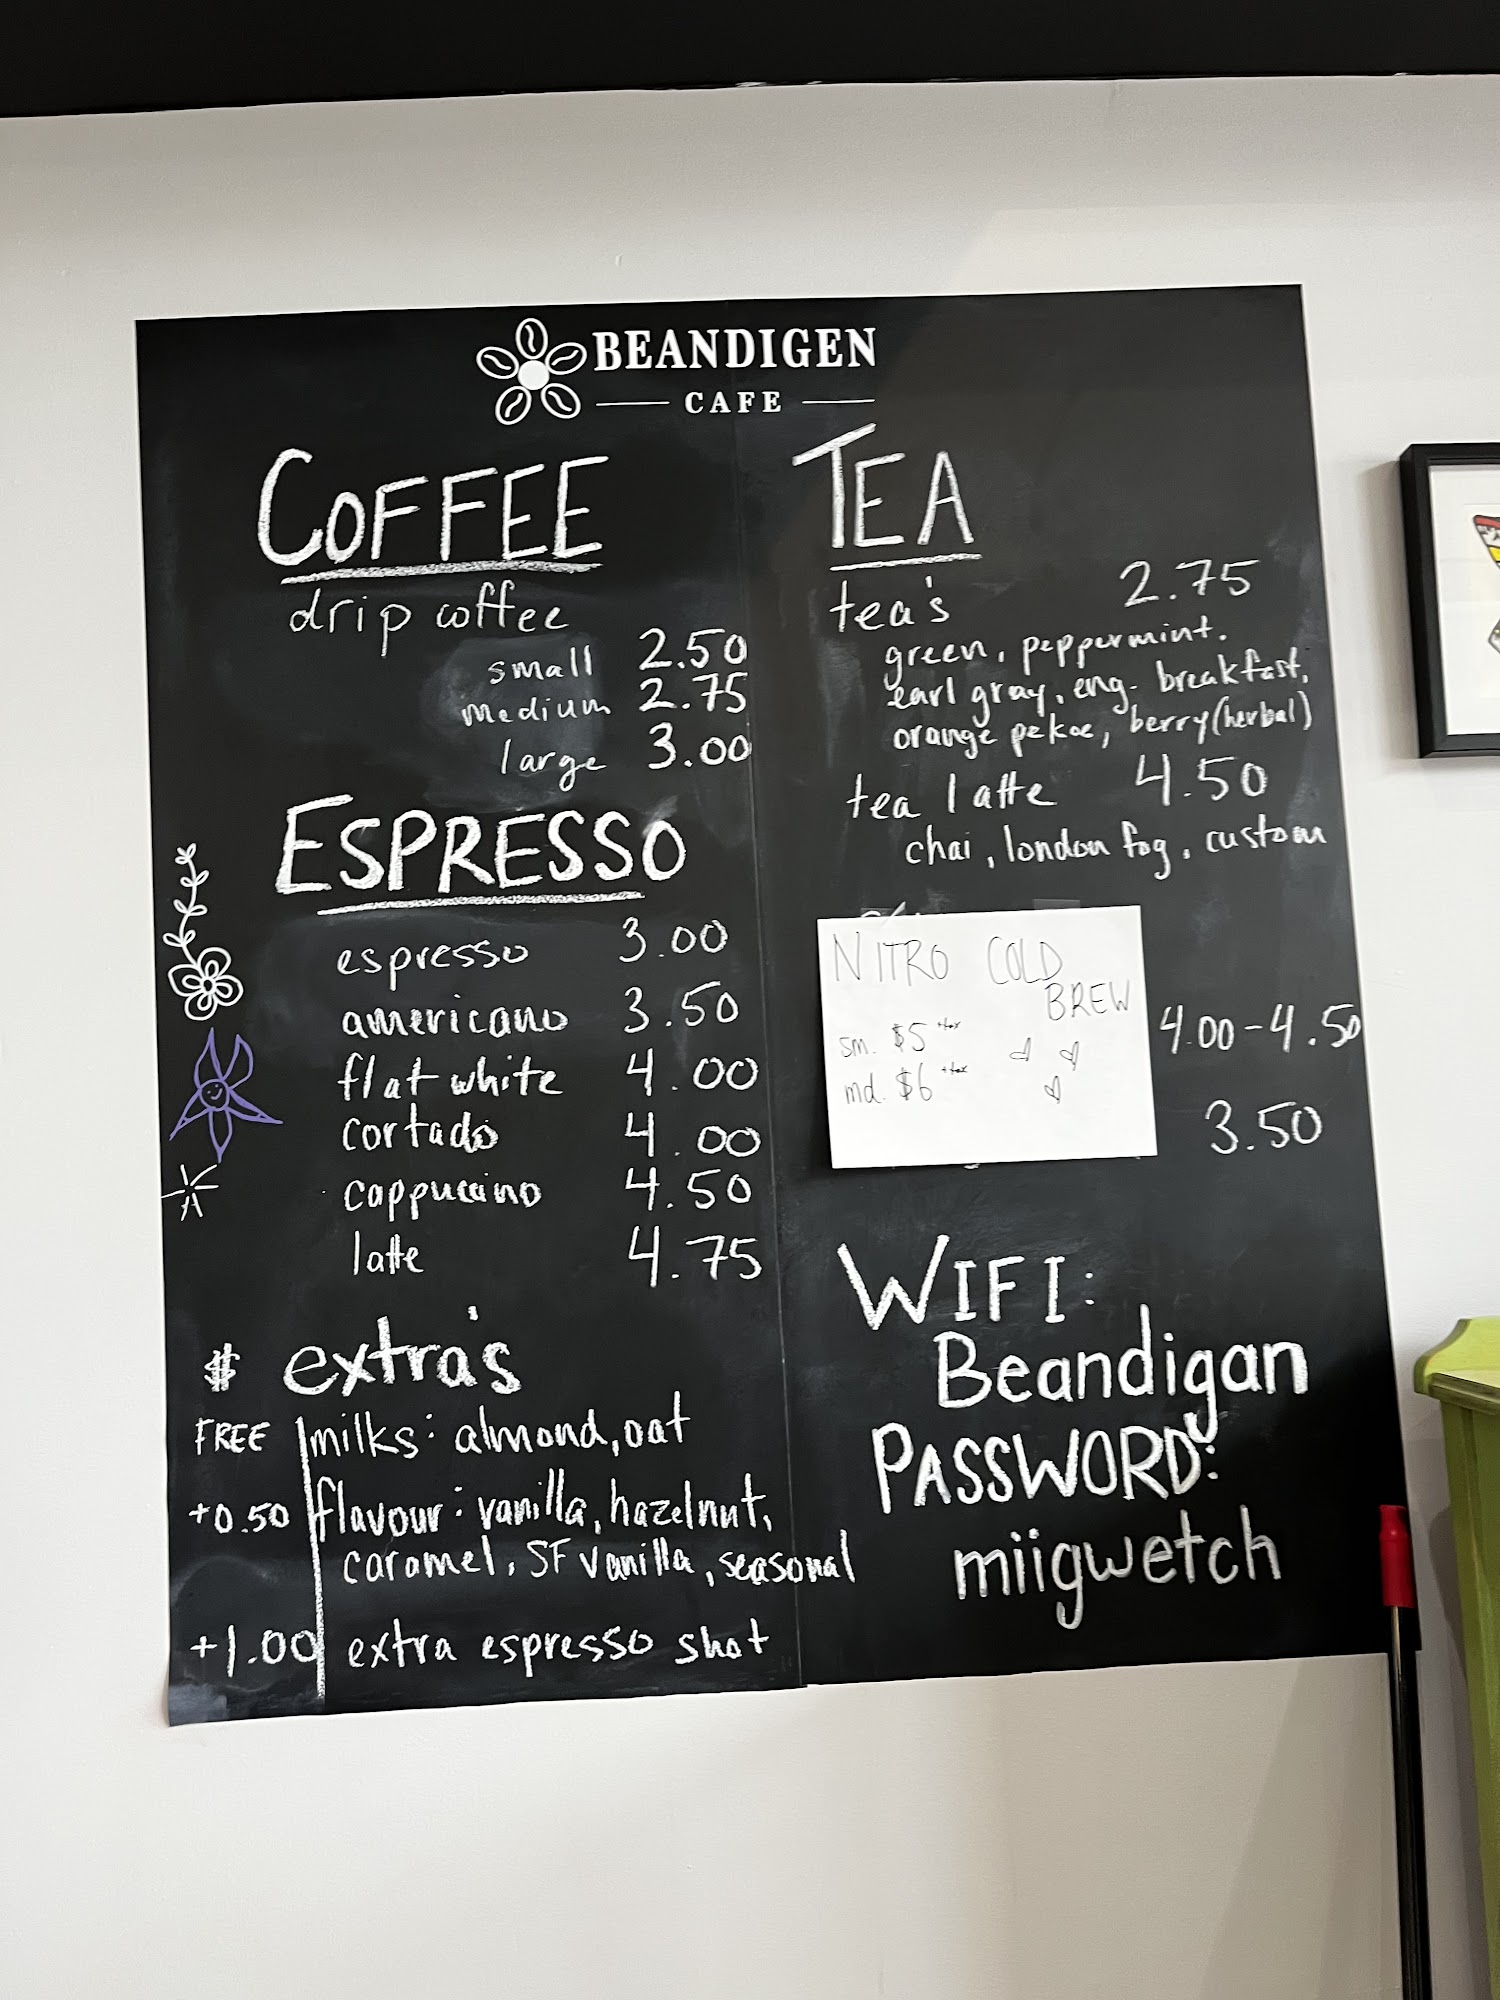 BEANDIGEN
CAFE
COFFEE
drip coffee
small 2.50
medium 2.75
large 3.00
ESPRESSO
espresso 3.00
americano 3.50
flat white 4.00
cortado 4.00
cappuccino 4.50
latte 4.75
$ extra's
FREE milks: almond, oat
+0.50 flavour: vanilla, hazelnut,
caramel, SF vanilla, seasonal
+1.00 extra espresso shot
TEA
tea's 2.75
green, peppermint.
earl gray, eng. breakfast,
orange pekoe, berry (herbal)
tea latte 4.50
chai, london fog, custom
NITRO COLD
BREW
sm. $5 +tax
md. $6 +tax
4.00-4.50
3.50
WIFI:
Beandigan
PASSWORD:
miigwetch